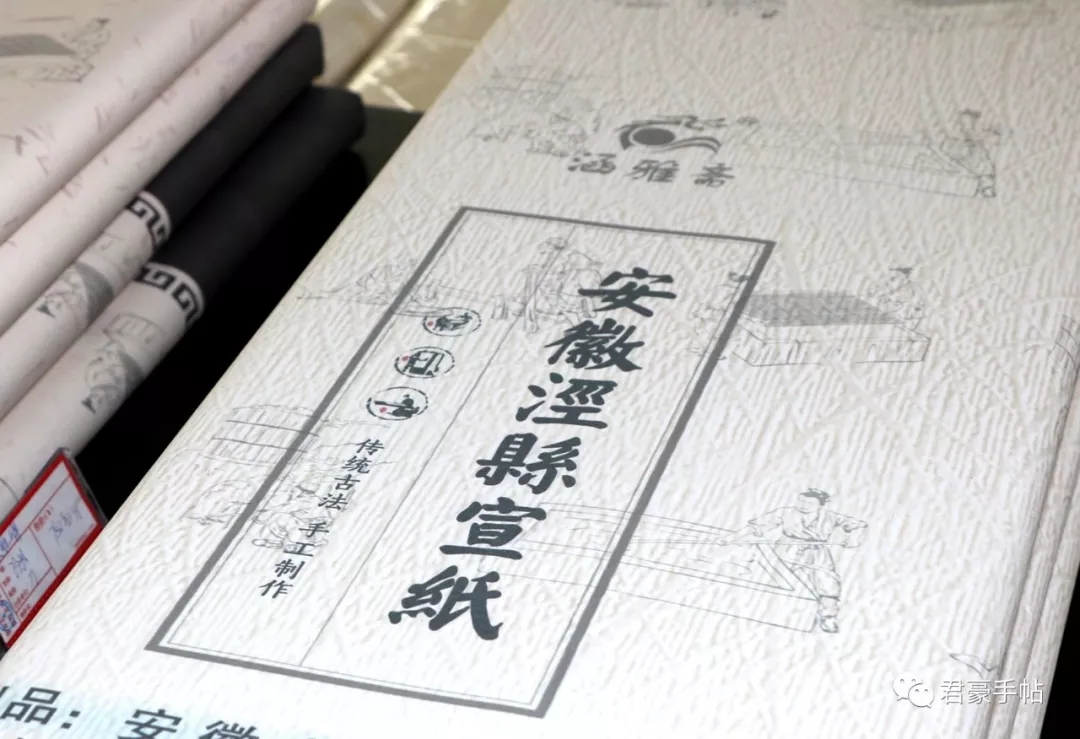 涵雅斋
安徽涇縣宣紙
传统古法 手工制作
品：安徽
君豪手帖